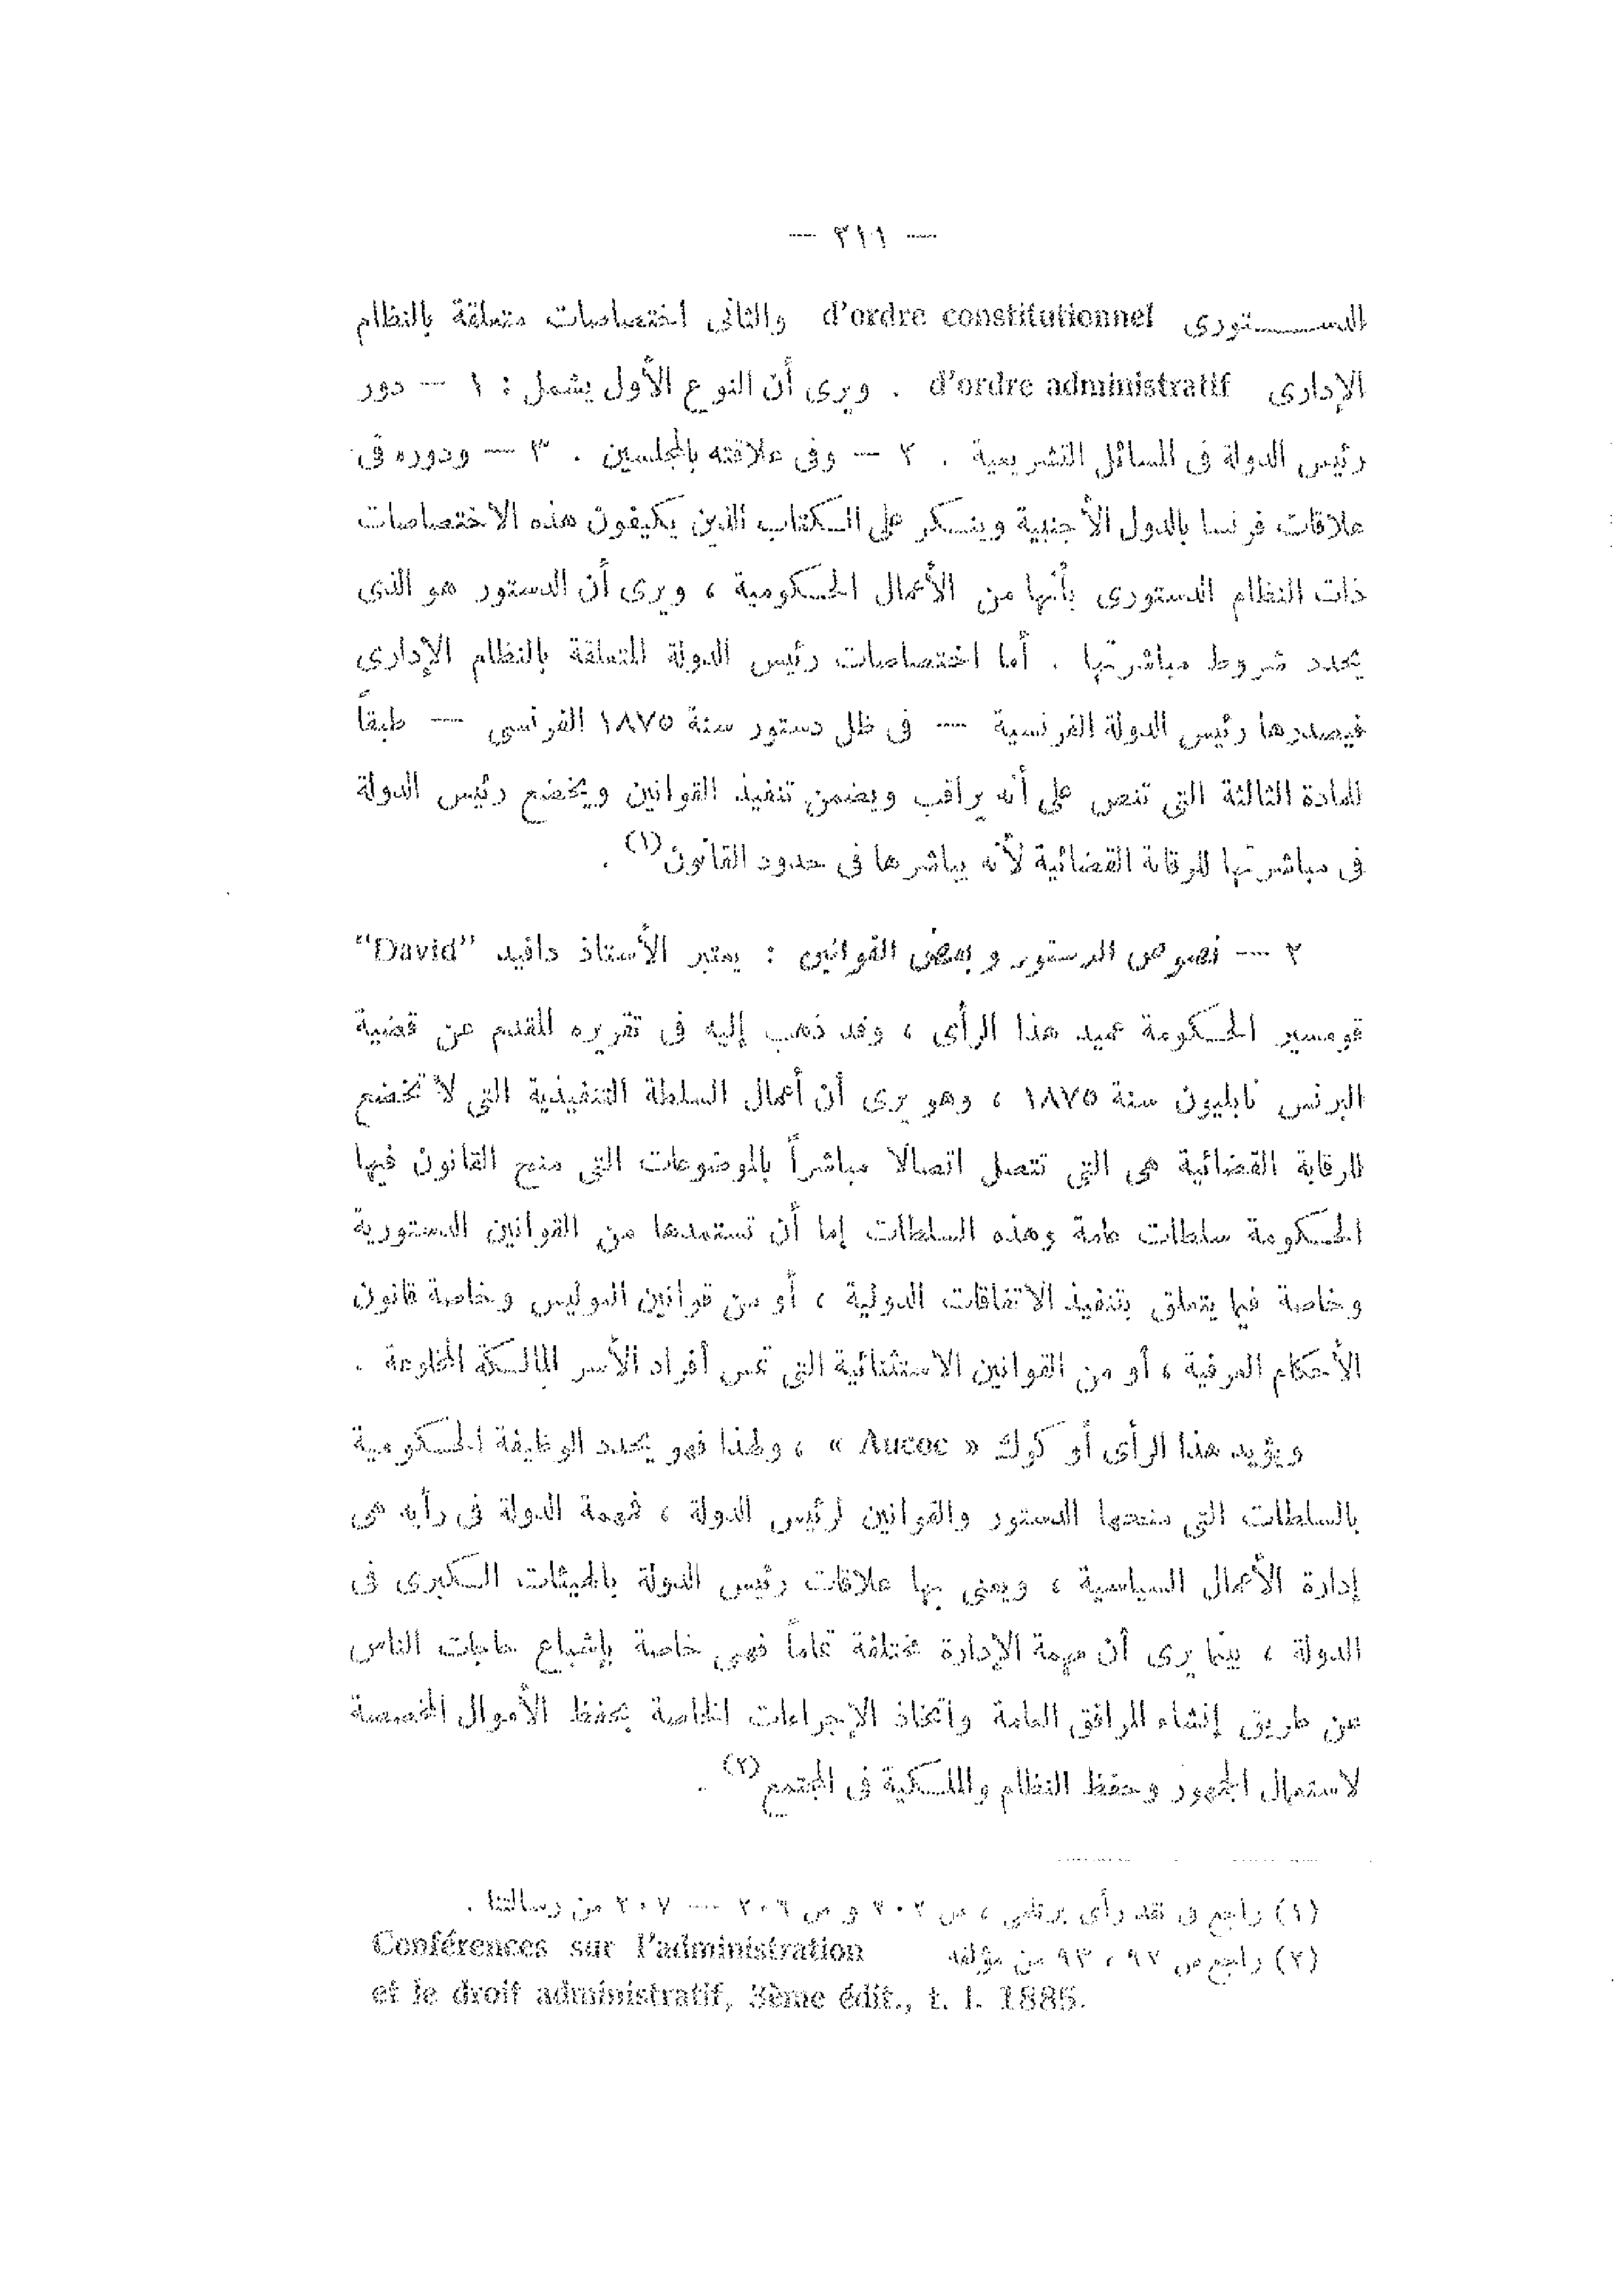 — ٣١١ —
الدســـتورى d'ordre constitutionnel والثانى اختصاصات متعلقة بالنظام
الإدارى d'ordre administratif . ويرى أن النوع الأول يشمل : ١ — دور
رئيس الدولة فى المسائل التشريعية . ٢ — وفى علاقته بالمجلسين . ٣ — ودوره فى
علاقات فرنسا بالدول الأجنبية وينكر على الكتاب الذين يكيفون هذه الاختصاصات
ذات النظام الدستورى بأنها من الأعمال الحكومية ، ويرى أن الدستور هو الذى
يحدد شروط مباشرتها . أما اختصاصات رئيس الدولة المتعلقة بالنظام الإدارى
فيصدرها رئيس الدولة الفرنسية — فى ظل دستور سنة ١٨٧٥ الفرنسى — طبقاً
للمادة الثالثة التى تنص على أنه يراقب ويضمن تنفيذ القوانين ويخضع رئيس الدولة
فى مباشرتها للرقابة القضائية لأنه يباشرها فى حدود القانون(١) .
٢ — نصوص الدستور وبعض القوانين : يعتبر الأستاذ دافيد “David”
قومسير الحكومة عميد هذا الرأى ، وقد ذهب إليه فى تقريره المقدم عن قضية
البرنس نابليون سنة ١٨٧٥ ، وهو يرى أن أعمال السلطة التنفيذية التى لا تخضع
للرقابة القضائية هى التى تتصل اتصالا مباشراً بالموضوعات التى منح القانون فيها
الحكومة سلطات هامة وهذه السلطات إما أن تستمدها من القوانين الدستورية
وخاصة فيما يتعلق بتنفيذ الاتفاقات الدولية ، أو من قوانين البوليس وخاصة قانون
الأحكام العرفية ، أو من القوانين الاستثنائية التى تمس أفراد الأسر المالكة المخلوعة .
ويؤيد هذا الرأى أو كوك « Aucoc » ، ولهذا فهو يحدد الوظيفة الحكومية
بالسلطات التى منحها الدستور والقوانين لرئيس الدولة ، فمهمة الدولة فى رأيه هى
إدارة الأعمال السياسية ، ويعنى بها علاقات رئيس الدولة بالهيئات الكبرى فى
الدولة ، بينما يرى أن مهمة الإدارة مختلفة تماماً فهى خاصة بإشباع حاجات الناس
عن طريق إنشاء المرافق العامة واتخاذ الإجراءات الخاصة بحفظ الأموال المخصصة
لاستعمال الجمهور وحفظ النظام والملكية فى المجتمع(٢) .
(١) راجع فى نقد رأى برتلمى ، ص ٢٠٢ و ص ٢٠٦ — ٢٠٧ من رسالتنا .
(٢) راجع ص ٩٢ ، ٩٣ من مؤلفه Conférences sur l'administration
et le droit administratif, 3ème édit., t. I. 1885.